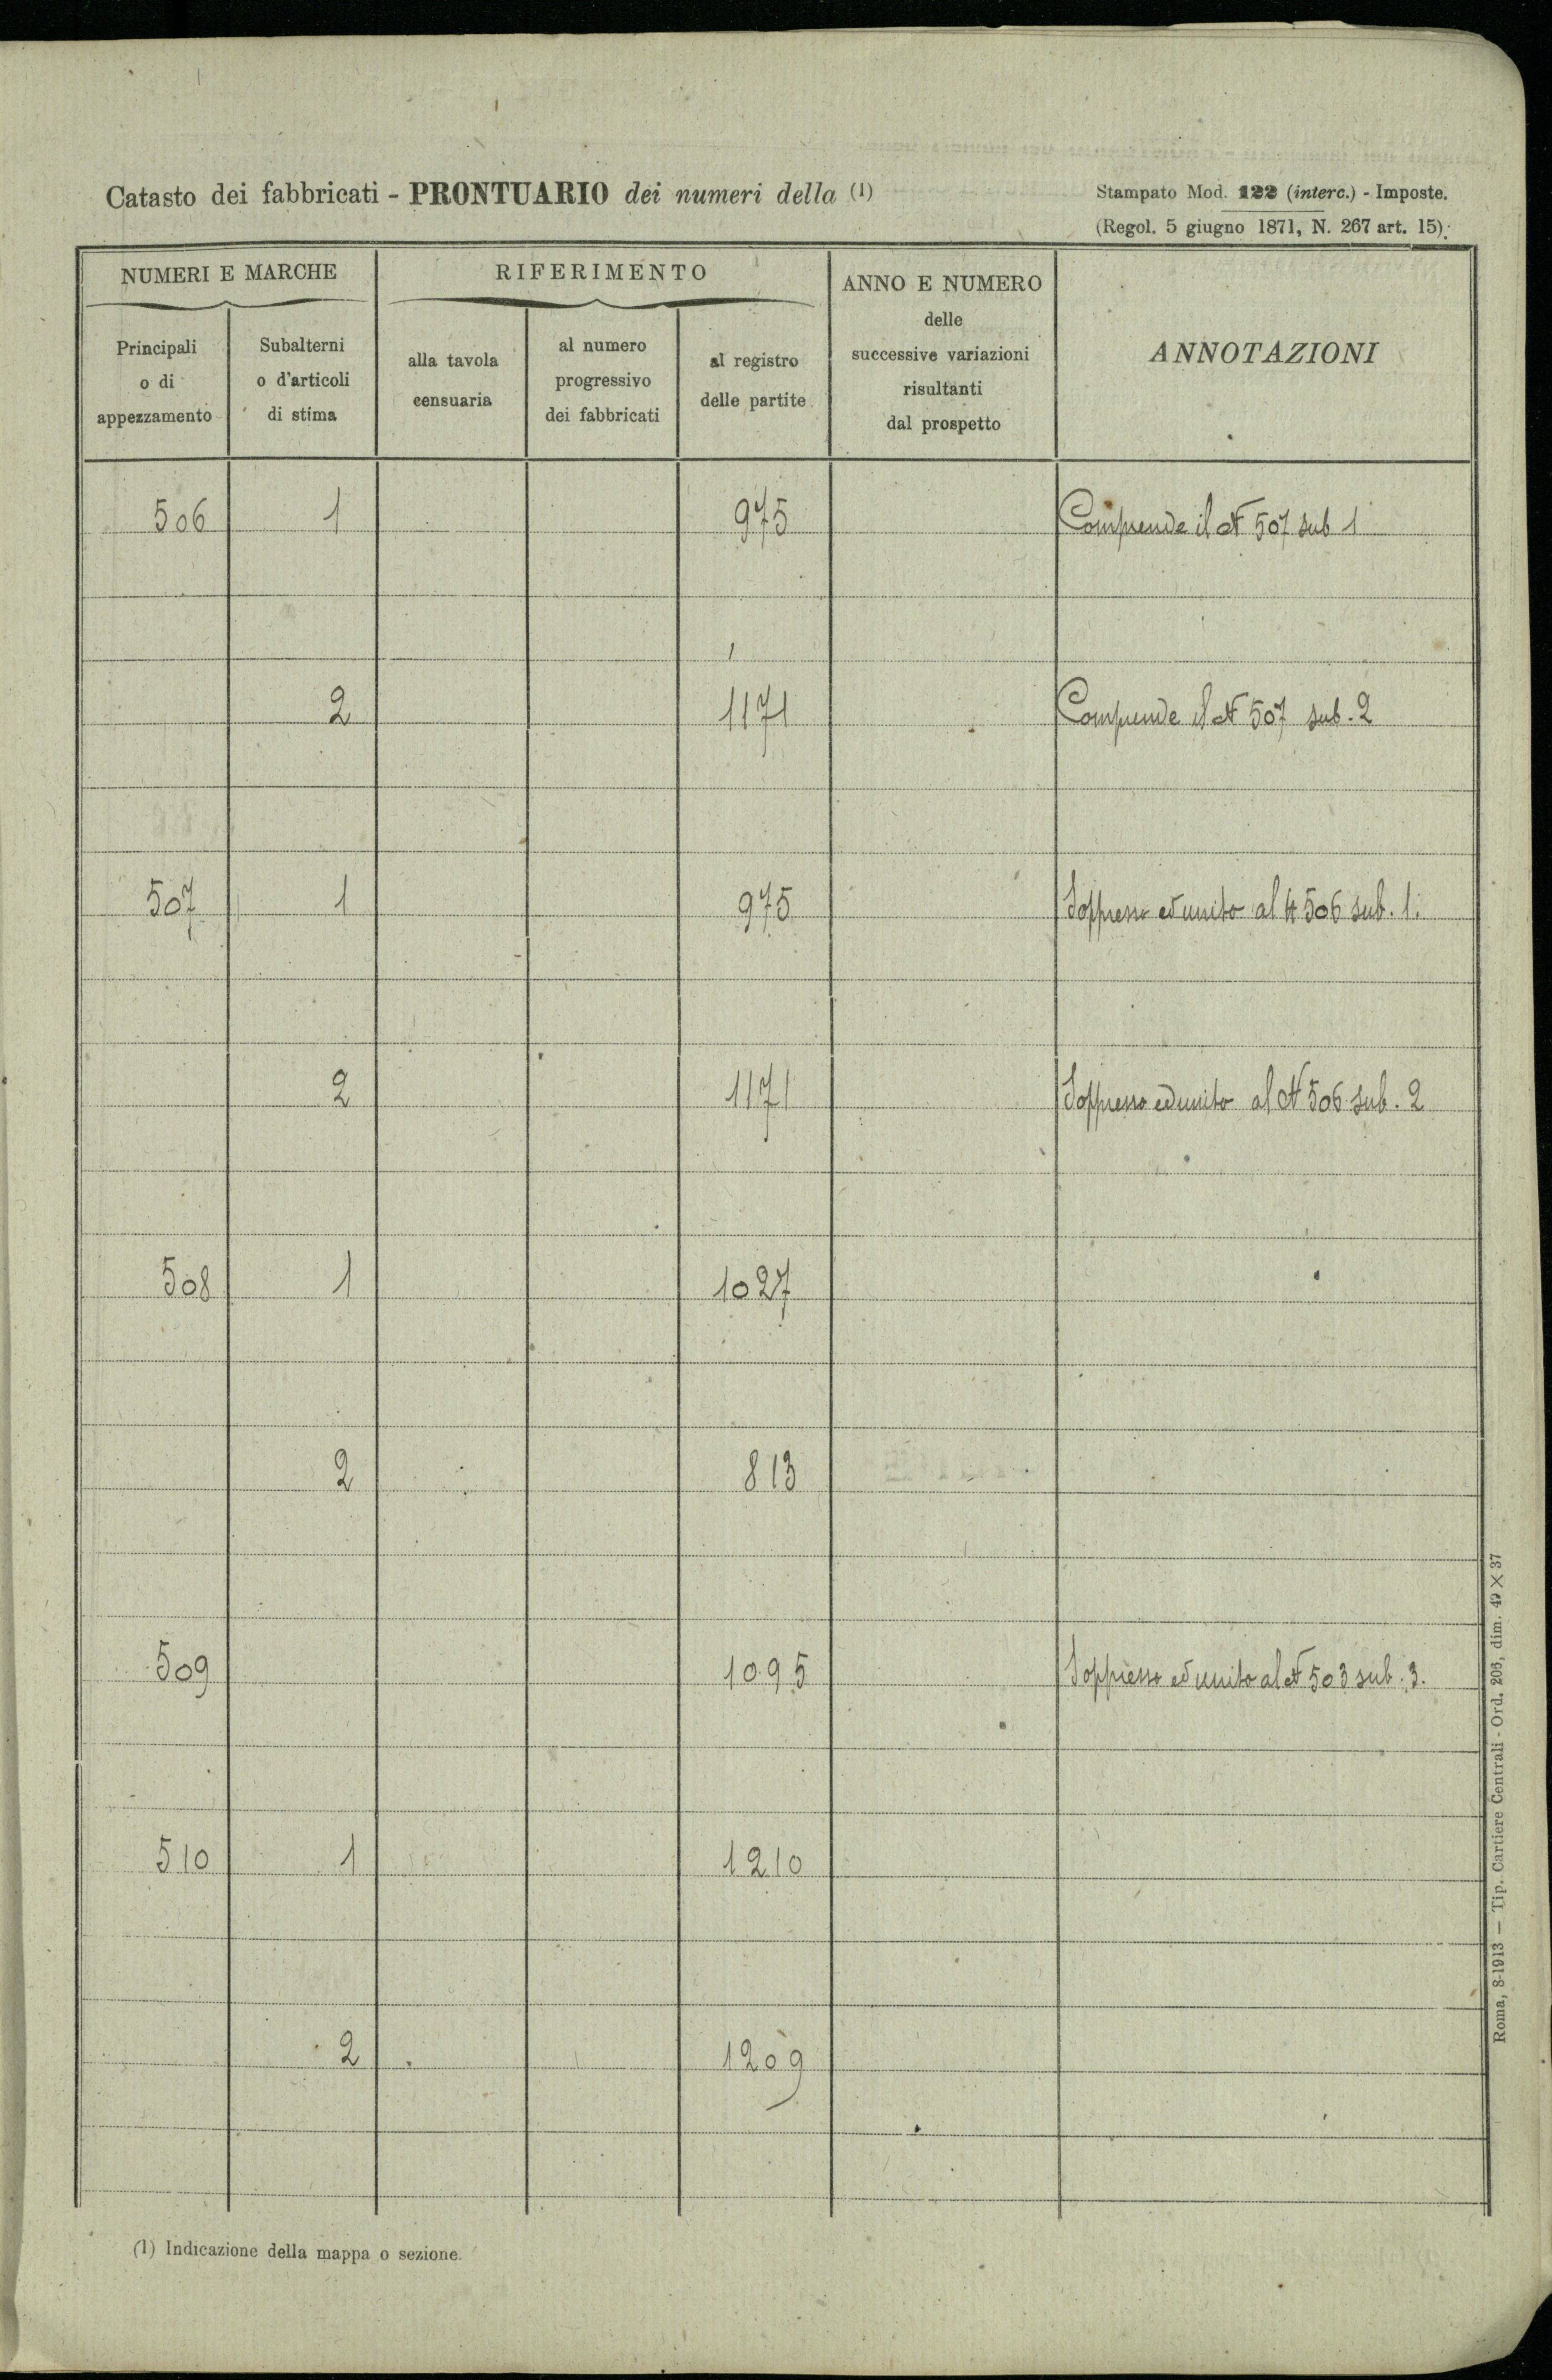 Catasto dei fabbricati - PRONTUARIO dei numeri della (1)
Stampato Mod. 122 (interc.) - Imposte.
(Regol. 5 giugno 1871, N. 267 art. 15).
NUMERI E MARCHE
RIFERIMENTO
ANNO E NUMERO
delle
successive variazioni
risultanti
dal prospetto
ANNOTAZIONI
Principali
o di
appezzamento
Subalterni
o d'articoli
di stima
alla tavola
censuaria
al numero
progressivo
dei fabbricati
al registro
delle partite
506 1 975 Comprende il N 507 sub 1
2 1171 Comprende il N 507 sub. 2
507 1 975 Soppresso ed unito al N 506 sub. 1.
2 1171 Soppresso ed unito al N 506 sub. 2
508 1 1027
2 813
509 1095 Soppresso ed unito al N 503 sub. 3.
510 1 1210
2 1209
(1) Indicazione della mappa o sezione.
Roma, 8-1913 — Tip. Cartiere Centrali - Ord. 203, dim. 49 × 37